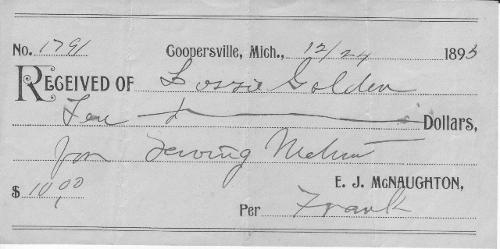 No. 1791 Coopersville, Mich., 12/24 1893
RECEIVED OF Golden
Ten Dollars,
for
$ 10.00 E. J. McNAUGHTON,
Per Frank